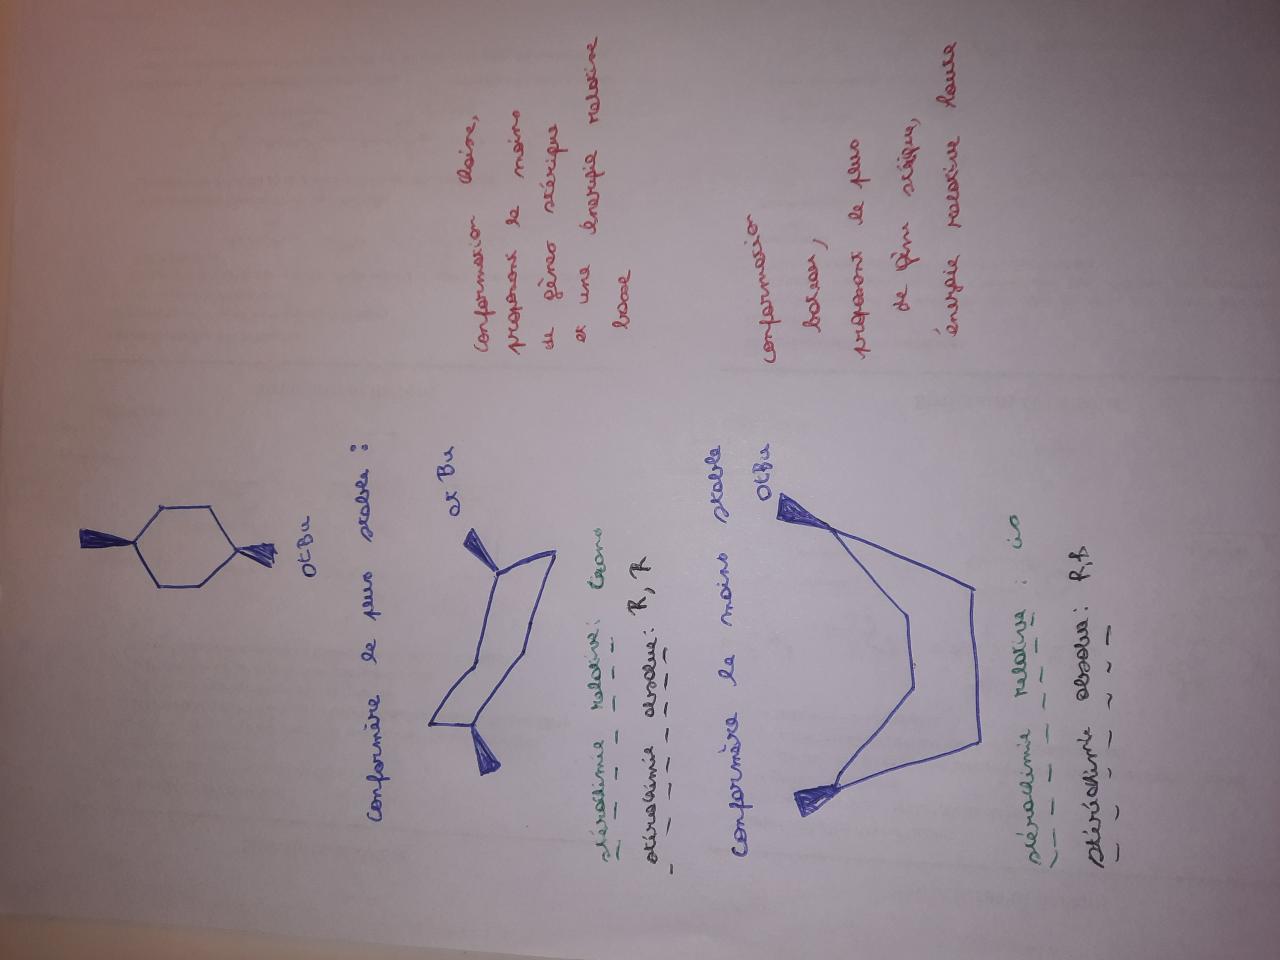 OtBu
Conformère le plus stable :
ot Bu
conformation chaise,
proposant le moins
de gênes stérique
et une énergie relative
basse
stéréochimie relative : trans
stéréochimie absolue : R, R
Conformère le moins stable
OtBu
conformation
bateau,
proposant le plus
de gêne stérique,
énergie relative haute
stéréochimie relative : cis
stéréochimie absolue : R,S